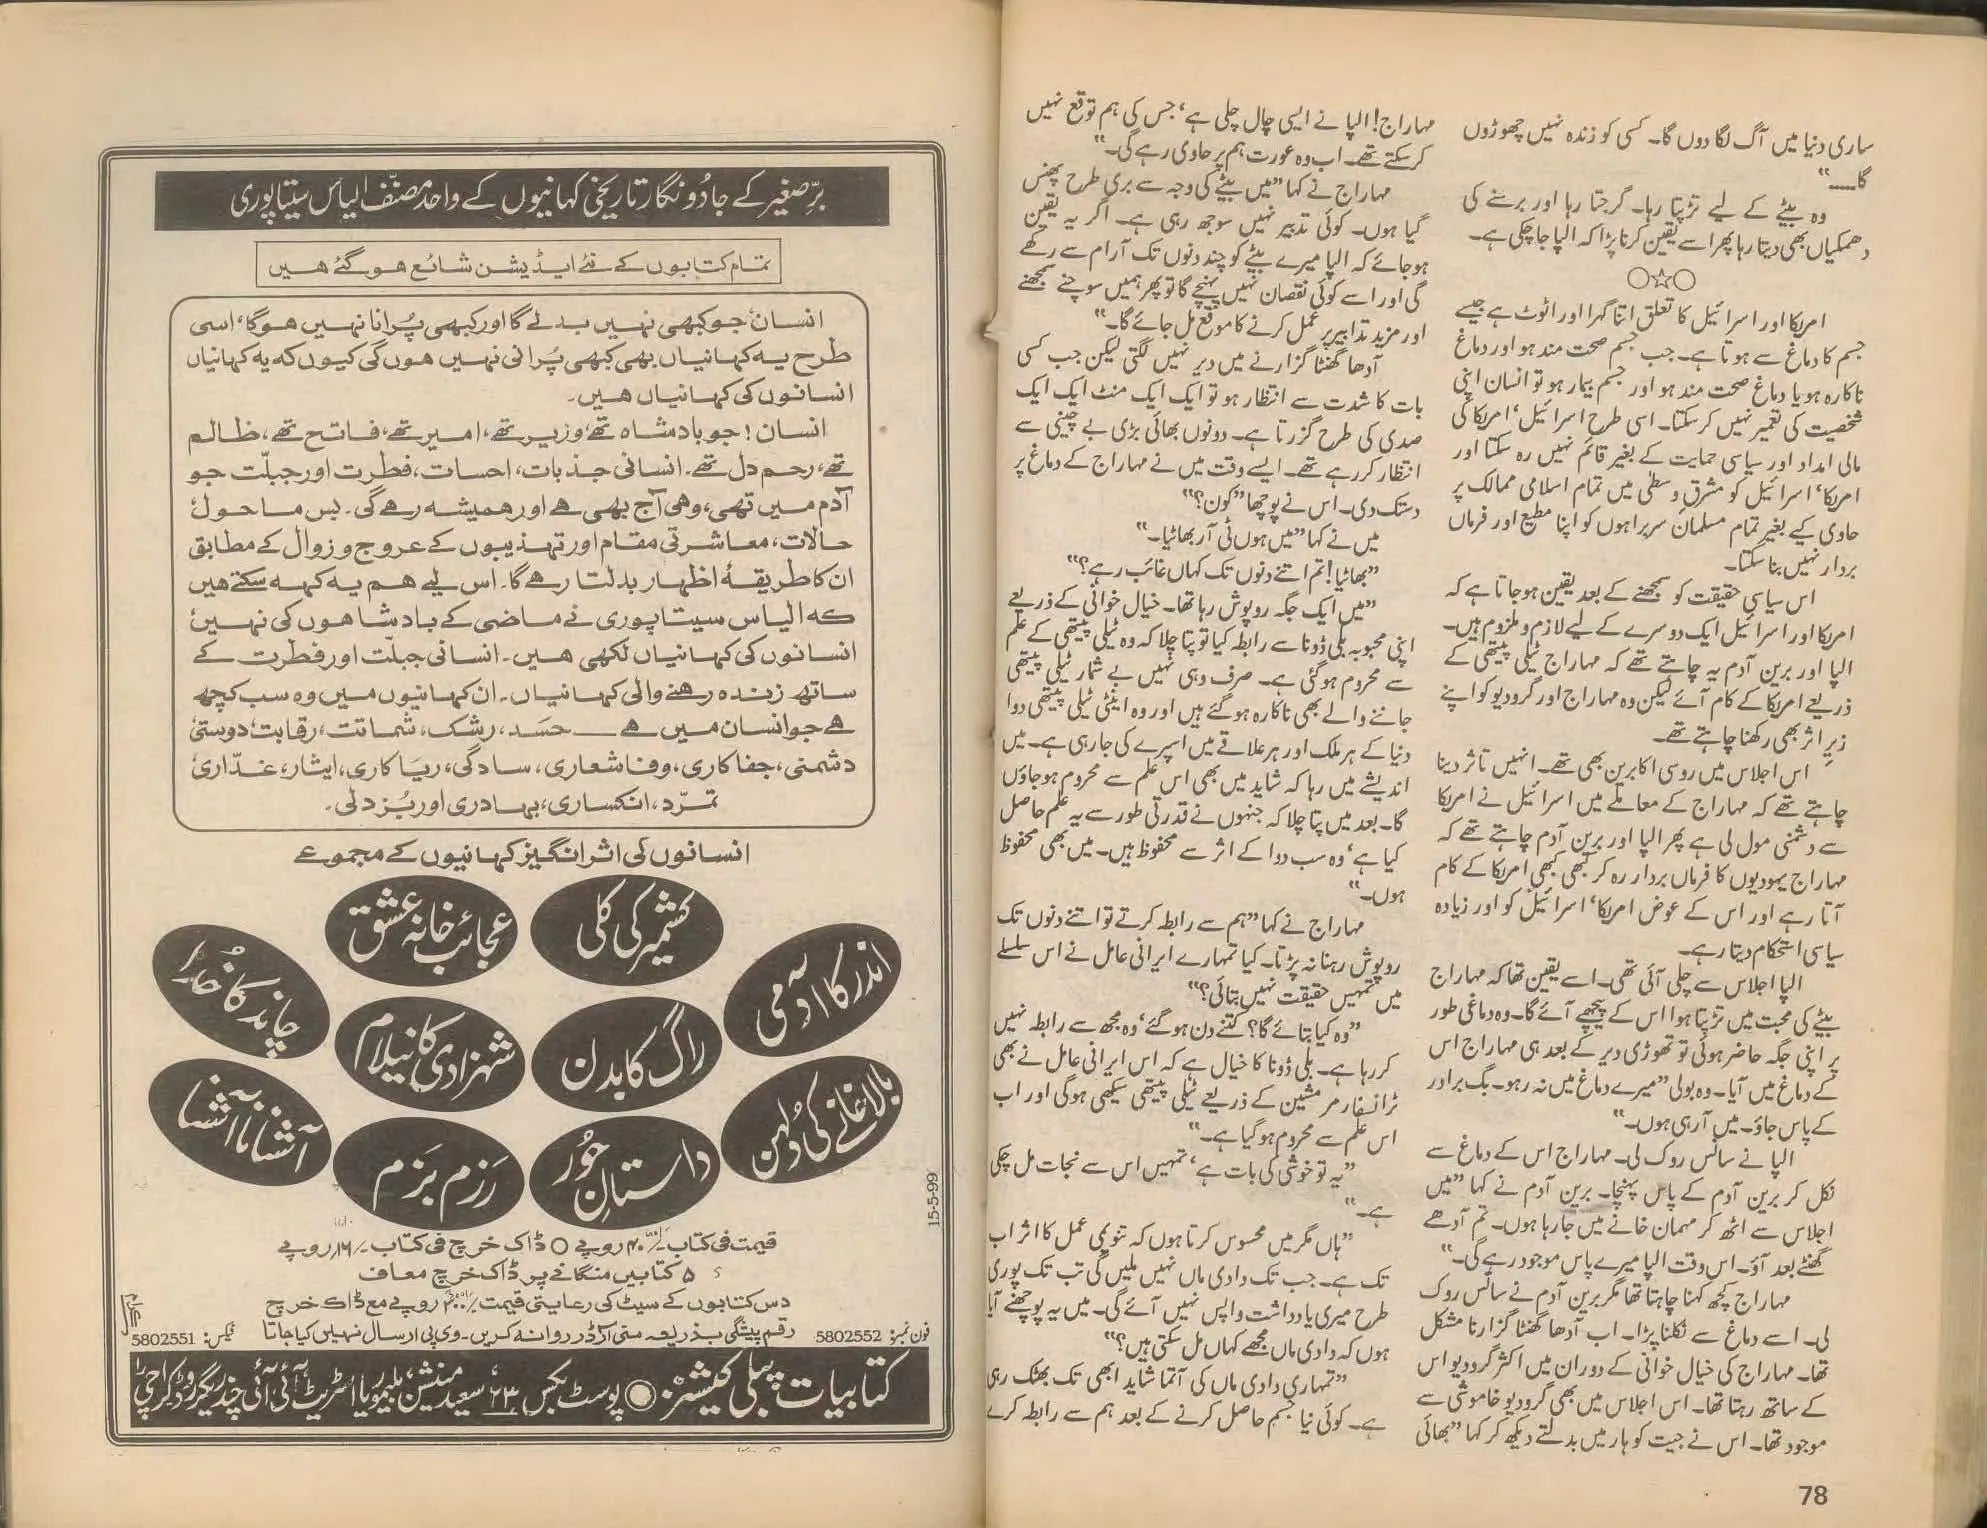 ساری دنیا میں آگ لگا دوں گا۔ کسی کو زندہ نہیں چھوڑوں
گا۔۔۔۔"
وہ بیٹے کے لیے تڑپتا رہا۔ گرجتا رہا اور برسنے کی
دھمکیاں بھی دیتا رہا پھر اسے یقین کرنا پڑا کہ الپا جا چکی ہے۔
○☆○
امریکا اور اسرائیل کا تعلق اتنا گہرا اور اٹوٹ ہے جیسے
جسم کا دماغ سے ہوتا ہے۔ جب جسم صحت مند ہو اور دماغ
ناکارہ ہو یا دماغ صحت مند ہو اور جسم بیمار ہو تو انسان اپنی
شخصیت کی تعمیر نہیں کر سکتا۔ اسی طرح اسرائیل' امریکا کی
مالی امداد اور سیاسی حمایت کے بغیر قائم نہیں رہ سکتا اور
امریکا' اسرائیل کو مشرقِ وسطیٰ میں تمام اسلامی ممالک پر
حاوی کیے بغیر تمام مسلمان سربراہوں کو اپنا مطیع اور فرماں
بردار نہیں بنا سکتا۔
اس سیاسی حقیقت کو سمجھنے کے بعد یقین ہو جاتا ہے کہ
امریکا اور اسرائیل ایک دوسرے کے لیے لازم و ملزوم ہیں۔
الپا اور برین آدم یہ چاہتے تھے کہ مہاراج ٹیلی پیتھی کے
ذریعے امریکا کے کام آئے لیکن وہ مہاراج اور گرودیو کو اپنے
زیرِ اثر بھی رکھنا چاہتے تھے۔
اس اجلاس میں روسی اکابرین بھی تھے۔ انہیں تاثر دینا
چاہتے تھے کہ مہاراج کے معاملے میں اسرائیل نے امریکا
سے دشمنی مول لی ہے پھر الپا اور برین آدم چاہتے تھے کہ
مہاراج یہودیوں کا فرماں بردار رہ کر کبھی کبھی امریکا کے کام
آتا رہے اور اس کے عوض امریکا' اسرائیل کو اور زیادہ
سیاسی استحکام دیتا رہے۔
الپا اجلاس سے چلی آئی تھی۔ اسے یقین تھا کہ مہاراج
بیٹے کی محبت میں تڑپتا ہوا اس کے پیچھے آئے گا۔ وہ دماغی طور
پر اپنی جگہ حاضر ہوئی تو تھوڑی دیر کے بعد ہی مہاراج اس
کے دماغ میں آیا۔ وہ بولی "میرے دماغ میں نہ رہو۔ بگ برادر
کے پاس جاؤ۔ میں آ رہی ہوں۔"
الپا نے سانس روک لی۔ مہاراج اس کے دماغ سے
نکل کر برین آدم کے پاس پہنچا۔ برین آدم نے کہا "میں
اجلاس سے اٹھ کر مہمان خانے میں جا رہا ہوں۔ تم آدھے
گھنٹے بعد آؤ۔ اس وقت الپا میرے پاس موجود رہے گی۔"
مہاراج کچھ کہنا چاہتا تھا مگر برین آدم نے سانس روک
لی۔ اسے دماغ سے نکلنا پڑا۔ اب آدھا گھنٹا گزارنا مشکل
تھا۔ مہاراج کی خیال خوانی کے دوران میں اکثر گرودیو اس
کے ساتھ رہتا تھا۔ اس اجلاس میں بھی گرودیو خاموشی سے
موجود تھا۔ اس نے جیت کو ہار میں بدلتے دیکھ کر کہا "بھائی
مہاراج! الپا نے ایسی چال چلی ہے' جس کی ہم توقع نہیں
کر سکتے تھے۔ اب وہ عورت ہم پر حاوی رہے گی۔"
مہاراج نے کہا "میں بیٹے کی وجہ سے بری طرح پھنس
گیا ہوں۔ کوئی تدبیر نہیں سوجھ رہی ہے۔ اگر یہ یقین
ہو جائے کہ الپا میرے بیٹے کو چند دنوں تک آرام سے رکھے
گی اور اسے کوئی نقصان نہیں پہنچے گا تو پھر ہمیں سوچنے سمجھنے
اور مزید تدابیر پر عمل کرنے کا موقع مل جائے گا۔"
آدھا گھنٹا گزارنے میں دیر نہیں لگتی لیکن جب کسی
بات کا شدت سے انتظار ہو تو ایک ایک منٹ ایک ایک
صدی کی طرح گزرتا ہے۔ دونوں بھائی بڑی بے چینی سے
انتظار کر رہے تھے۔ ایسے وقت میں نے مہاراج کے دماغ پر
دستک دی۔ اس نے پوچھا "کون؟"
میں نے کہا "میں ہوں ٹی آر بھاٹیا۔"
"بھاٹیا! تم اتنے دنوں تک کہاں غائب رہے؟"
"میں ایک جگہ روپوش رہا تھا۔ خیال خوانی کے ذریعے
اپنی محبوبہ بلی ڈونا سے رابطہ کیا تو پتا چلا کہ وہ ٹیلی پیتھی کے علم
سے محروم ہو گئی ہے۔ صرف وہی نہیں بے شمار ٹیلی پیتھی
جاننے والے بھی ناکارہ ہو گئے ہیں اور وہ اینٹی ٹیلی پیتھی دوا
دنیا کے ہر ملک اور ہر علاقے میں اسپرے کی جا رہی ہے۔ میں
اندیشے میں رہا کہ شاید میں بھی اس علم سے محروم ہو جاؤں
گا۔ بعد میں پتا چلا کہ جنہوں نے قدرتی طور سے یہ علم حاصل
کیا ہے' وہ سب دوا کے اثر سے محفوظ ہیں۔ میں بھی محفوظ
ہوں۔"
مہاراج نے کہا "ہم سے رابطہ کرتے تو اتنے دنوں تک
روپوش رہنا نہ پڑتا۔ کیا تمہارے ایرانی عامل نے اس سلسلے
میں تمہیں حقیقت نہیں بتائی؟"
"وہ کیا بتائے گا؟ کتنے دن ہو گئے' وہ مجھ سے رابطہ نہیں
کر رہا ہے۔ بلی ڈونا کا خیال ہے کہ اس ایرانی عامل نے بھی
ٹرانسفارمر مشین کے ذریعے ٹیلی پیتھی سیکھی ہوگی اور اب
اس علم سے محروم ہو گیا ہے۔"
"یہ تو خوشی کی بات ہے' تمہیں اس سے نجات مل چکی
ہے۔"
"ہاں مگر میں محسوس کرتا ہوں کہ تنویمی عمل کا اثر اب
تک ہے۔ جب تک دادی ماں نہیں ملیں گی تب تک پوری
طرح میری یادداشت واپس نہیں آئے گی۔ میں یہ پوچھنے آیا
ہوں کہ دادی ماں مجھے کہاں مل سکتی ہیں؟"
"تمہاری دادی ماں کی آتما شاید ابھی تک بھٹک رہی
ہے۔ کوئی نیا جسم حاصل کرنے کے بعد ہم سے رابطہ کرے
78
برِّصغیر کے جادُو نگار تاریخی کہانیوں کے واحد مصنّف الیاس سیتاپوری
تمام کتابوں کے نئے ایڈیشن شائع ہو گئے ہیں
انسان' جو کبھی نہیں بدلے گا اور کبھی پُرانا نہیں ہوگا، اسی
طرح یہ کہانیاں بھی کبھی پُرانی نہیں ہوں گی کیوں کہ یہ کہانیاں
انسانوں کی کہانیاں ہیں۔
انسان! جو بادشاہ تھے، وزیر تھے، امیر تھے، فاتح تھے، ظالم
تھے، رحم دل تھے۔ انسانی جذبات، احسات، فطرت اور جبلّت جو
آدم میں تھی، وہی آج بھی ہے اور ہمیشہ رہے گی۔ بس ماحول'
حالات، معاشرتی مقام اور تہذیبوں کے عروج و زوال کے مطابق
ان کا طریقۂ اظہار بدلتا رہے گا۔ اس لیے ہم یہ کہہ سکتے ہیں
کہ الیاس سیتاپوری نے ماضی کے بادشاہوں کی نہیں'
انسانوں کی کہانیاں لکھی ہیں۔ انسانی جبلّت اور فطرت کے
ساتھ زندہ رہنے والی کہانیاں۔ ان کہانیوں میں وہ سب کچھ
ہے جو انسان میں ہے ـــ حسَد، رشک، شماتت، رقابت' دوستی'
دشمنی، جفاکاری، وفا شعاری، سادگی، ریاکاری، ایثار، غدّاری'
تمرّد، انکساری، بہادری اور بُزدلی۔
انسانوں کی اثر انگیز کہانیوں کے مجموعے
کشمیر کی کلی
عجائب خانہ عشق
اندر کا آدمی
چاند کا خدا
راگ کا بدن
شہزادی کا نیلام
بالاخانے کی دُلہن
آشنا ناآشنا
داستانِ حُور
رَزم بَزم
15-5-99
قیمت فی کتاب ۴۰/ روپے ○ ڈاک خرچ فی کتاب ۱۶/ روپے
۵ کتابیں منگانے پر ڈاک خرچ معاف
دس کتابوں کے سیٹ کی رعایتی قیمت ۳۰۰/ روپے مع ڈاک خرچ
فون نمبر: 5802552 رقم پیشگی بذریعہ منی آرڈر روانہ کریں۔ وی پی ارسال نہیں کیا جاتا فیکس: 5802551
کتابیات پبلی کیشنز ● پوسٹ بکس ۲۳ سعید مینشن، بلیموریا اسٹریٹ آئی آئی چندریگر روڈ کراچی